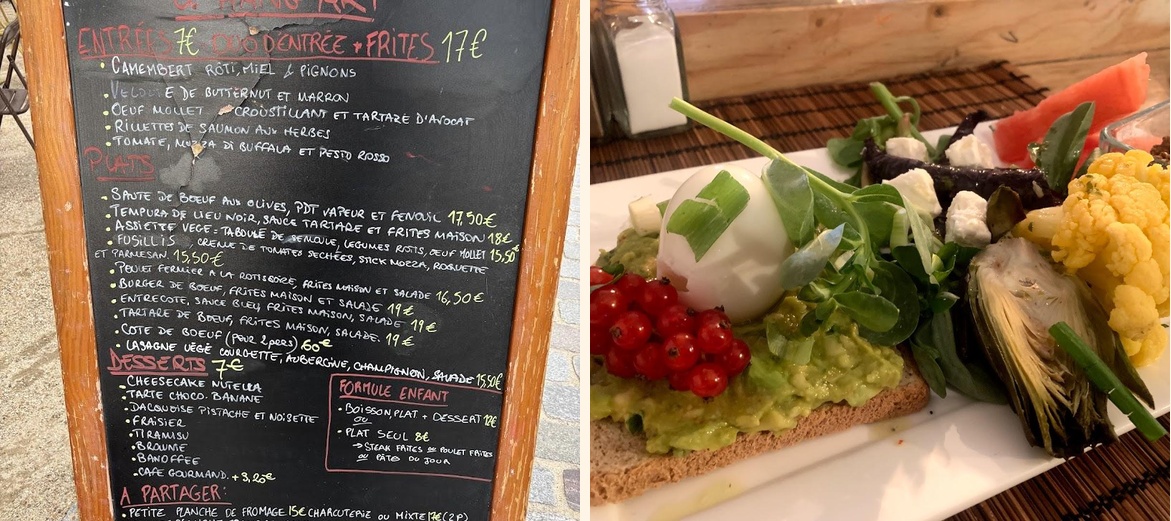 ENTRÉES 7€ DUO D'ENTRÉE + FRITES 17€
• CAMEMBERT RÔTI, MIEL & PIGNONS
DE BUTTERNUT ET MARRON
• OEUF MOLLET CROUSTILLANT ET TARTARE D'AVOCAT
• RILLETTES DE SAUMON AUX HERBES
• TOMATE, MOZZA DI BUFFALA ET PESTO ROSSO
PLATS
• SAUTE DE BOEUF AUX OLIVES, PDT VAPEUR ET FENOUIL 17,50€
• TEMPURA DE LIEU NOIR, SAUCE TARTARE ET FRITES MAISON 18€
• ASSIETTE VEGE = TABOULÉ DE SEMOULE, LEGUMES ROTIS, OEUF MOLLET 15,50
• FUSILLIS CREME DE TOMATES SECHÉES, STICK MOZZA, ROQUETTE
ET PARMESAN. 15,50€
• POULET FERMIER A LA ROTISSOIRE, FRITES MAISON ET SALADE 16,50€
• BURGER DE BOEUF, FRITES MAISON ET SALADE 19€
• ENTRECOTE, SAUCE BLEU, FRITES MAISON, SALADE 19€
• TARTARE DE BOEUF, FRITES MAISON, SALADE. 19€
• COTE DE BOEUF (POUR 2 PERS) 60€
• LASAGNE VÉGÉ COURGETTE, AUBERGINE, CHAMPIGNON, SALADE 15,50€
DESSERTS 7€
• CHEESECAKE NUTELLA
• TARTE CHOCO. BANANE
• DACQUOISE PISTACHE ET NOISETTE
• FRAISIER
• TIRAMISU
• BROWNIE
• BANOFFEE
• CAFE GOURMAND. + 3,20€
FORMULE ENFANT
• BOISSON PLAT + DESSERT 12€
OU
• PLAT SEUL 8€
→ STEAK FRITES OU POULET FRITES
OU PÂTE DU JOUR
A PARTAGER:
• PETITE PLANCHE DE FROMAGE 15€ CHARCUTERIE OU MIXTE 17€ (2P)